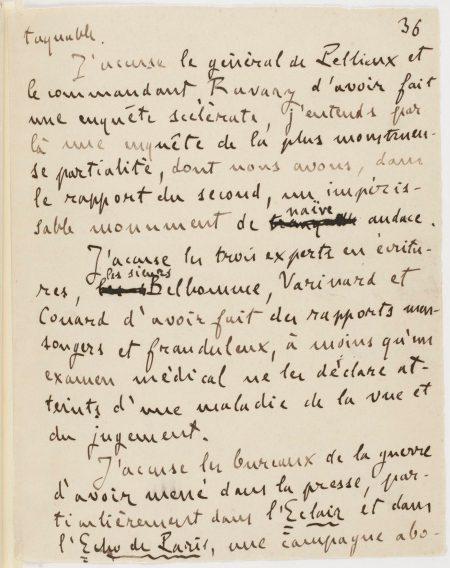 36
taquable.
J'accuse le général de Pellieux et
le commandant Ravary d'avoir fait
une enquête scélérate, j'entends par
là une enquête de la plus monstrueu-
se partialité, dont nous avons, dans
le rapport du second, un impéris-
sable monument de naïve audace.
J'accuse les trois experts en écritu-
res, les sieurs Belhomme, Varinard et
Couard d'avoir fait des rapports men-
songers et frauduleux, à moins qu'un
examen médical ne les déclare at-
teints d'une maladie de la vue et
du jugement.
J'accuse les bureaux de la guerre
d'avoir mené dans la presse, par-
ticulièrement dans l'Eclair et dans
l'Echo de Paris, une campagne abo-